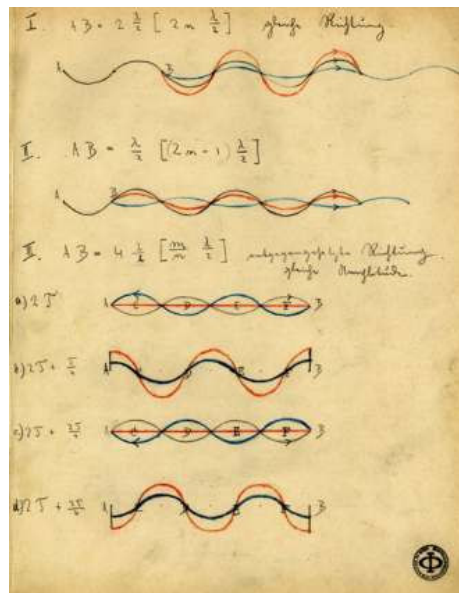 I. AB = 2 λ/2 [2n λ/2] gleiche Richtung.
A B
II. AB = λ/2 [(2n-1) λ/2]
A B
II. AB = 4 λ/2 [m/n λ/2] entgegengesetzte Richtung.
gleiche Amplitude.
a) 2T A C D E F B
b) 2T + T/4 A D E B
c) 2T + 2T/4 A C D E F B
d) 2T + 3T/4 A B
Φ